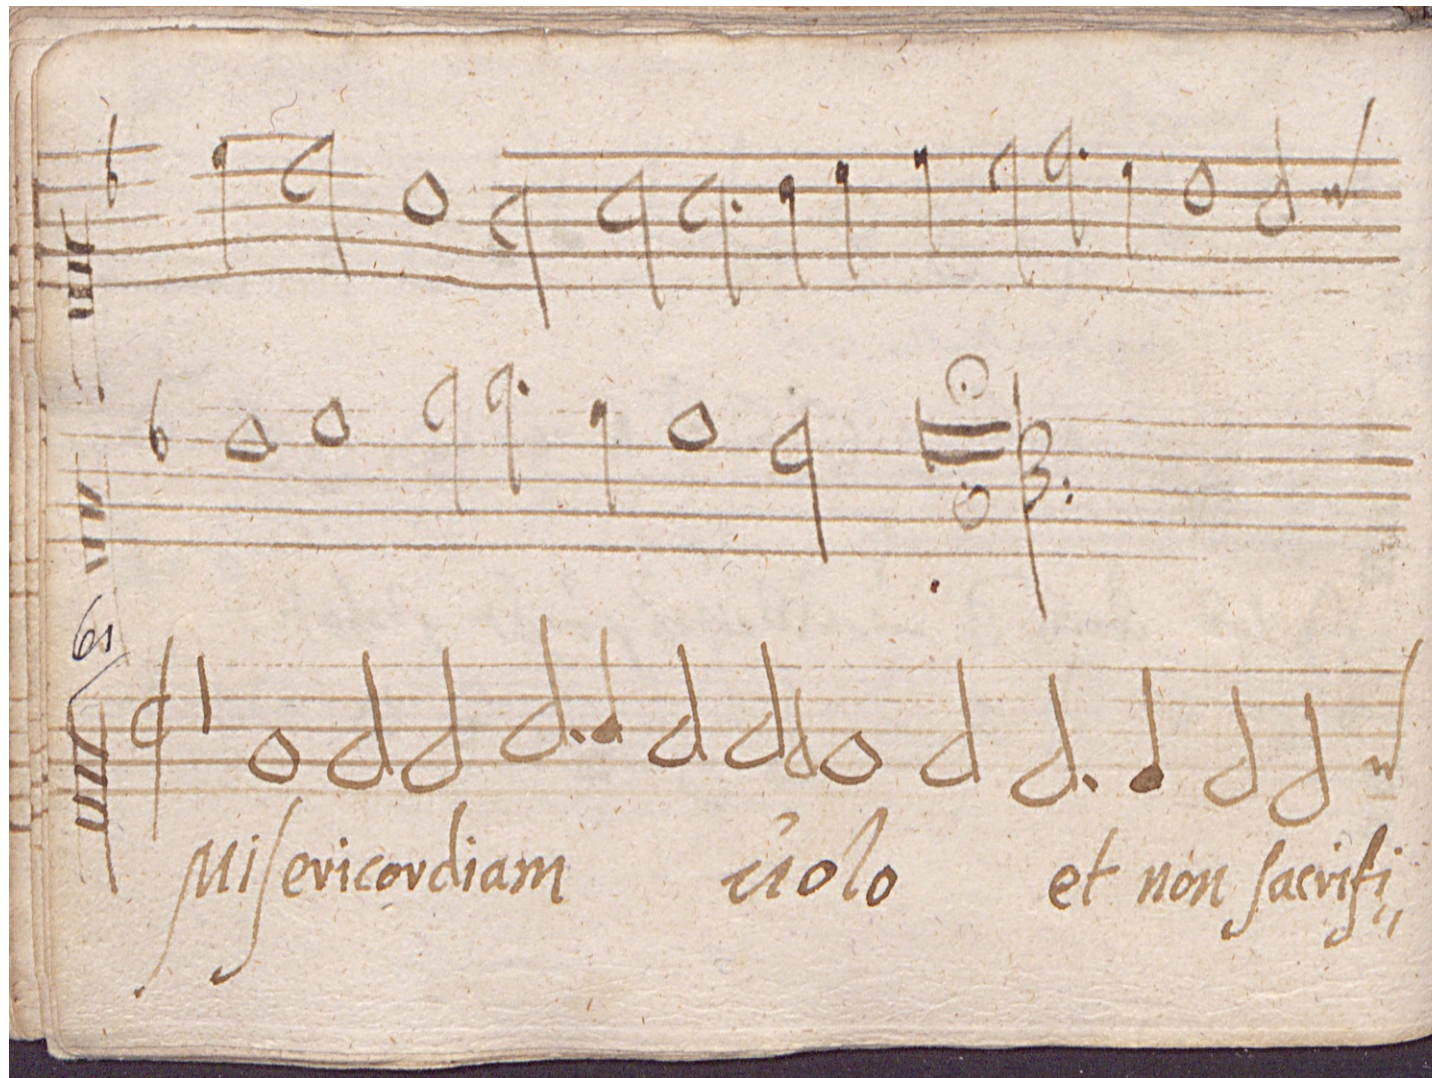 61
Misericordiam volo et non sacrifi„